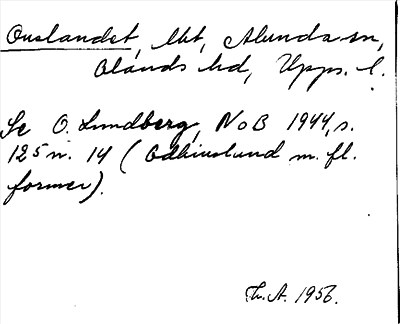 Onslandet, lht, Alunda sn,
Olands hd, Upps. l.
Se O. Lundberg, NoB 1944, s.
125 n. 14 (Odhinslund m. fl.
former).
Th. A. 1956.